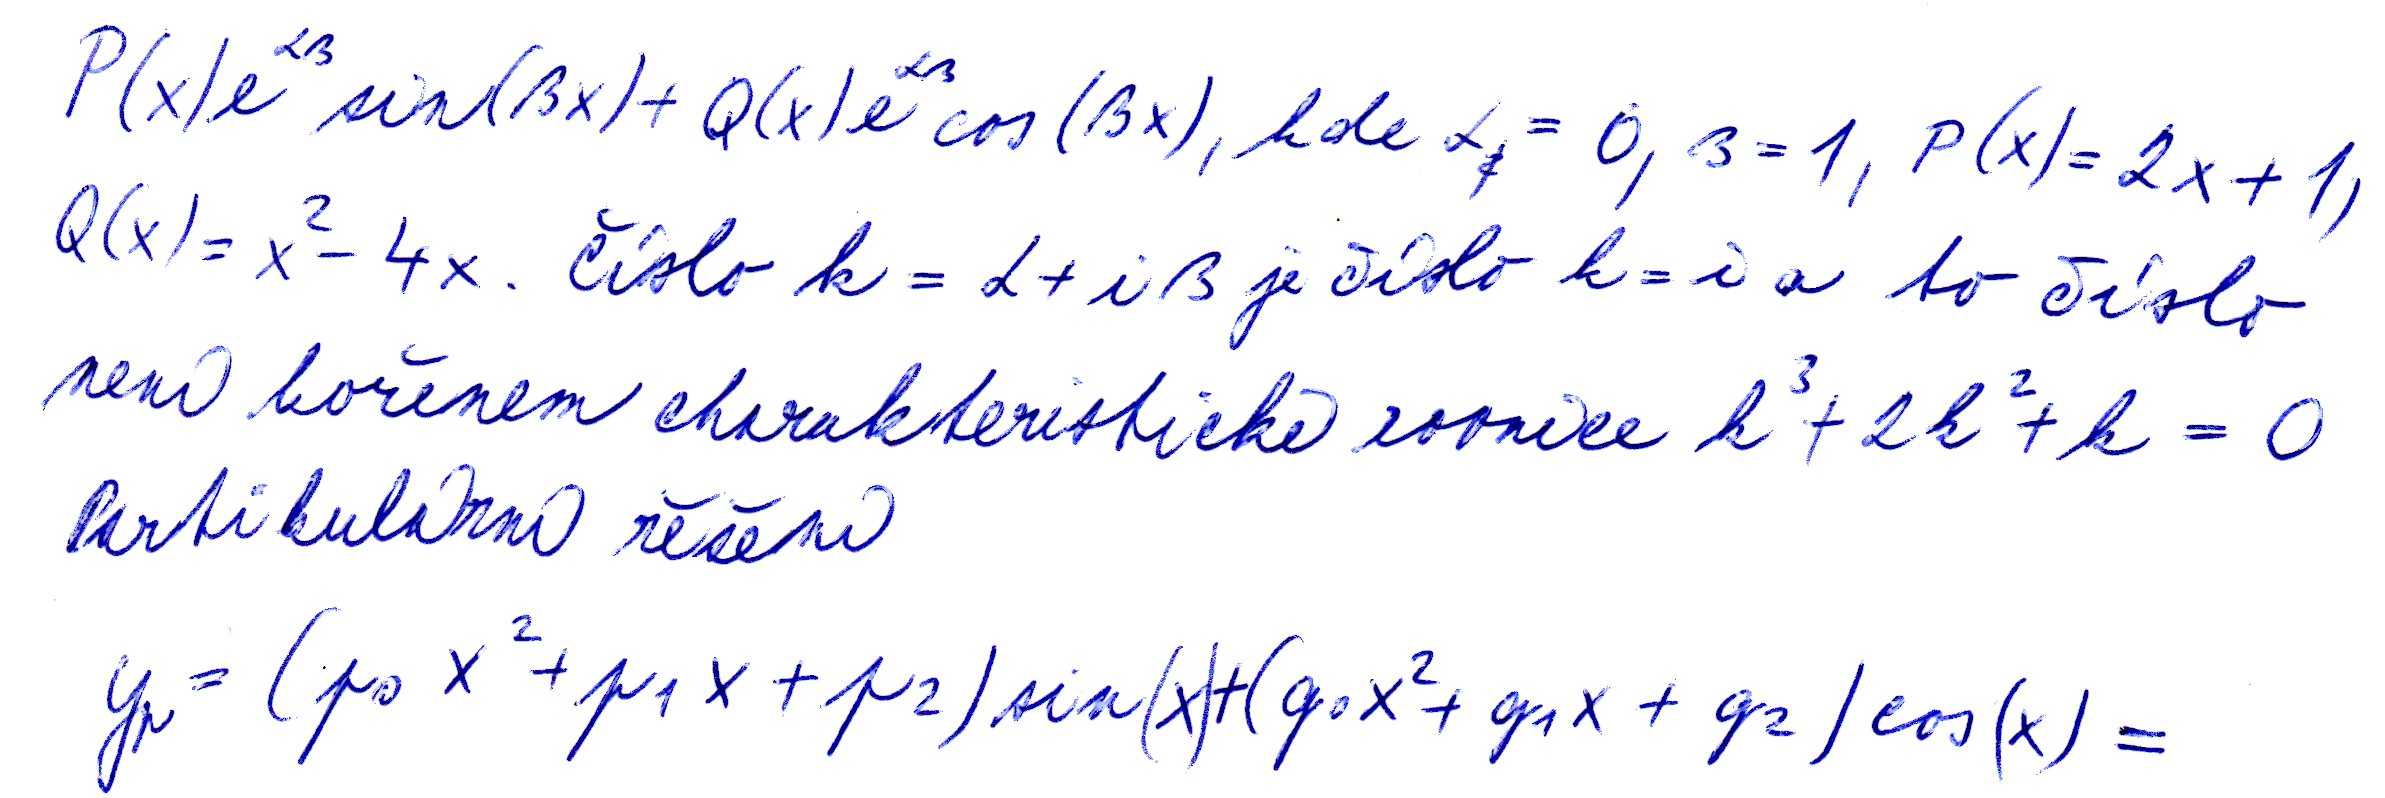 P(x)e^{αβ} sin(βx) + Q(x)e^{αβ} cos(βx), kde α = 0, β = 1, P(x) = 2x + 1,
Q(x) = x² - 4x. Číslo k = α + iβ je číslo k = i a to číslo
není kořenem charakteristické rovnice k³ + 2k² + k = 0
Partikulární řešení
y_p = (p₀x² + p₁x + p₂) sin(x) + (q₀x² + q₁x + q₂) cos(x) =